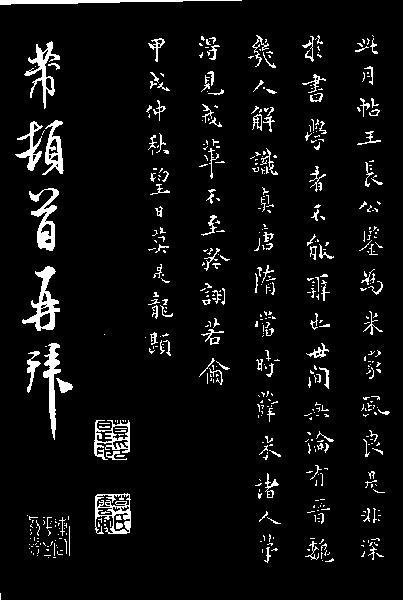 此月帖王長公鑒為米家風良是非深
於書學者不能辨也世間無論有晉魏
幾人解識真唐隋當時薛米諸人第
得見我輩不至矜詡若爾
甲戌仲秋望日莫是龍題
芾頓首再拜
莫氏